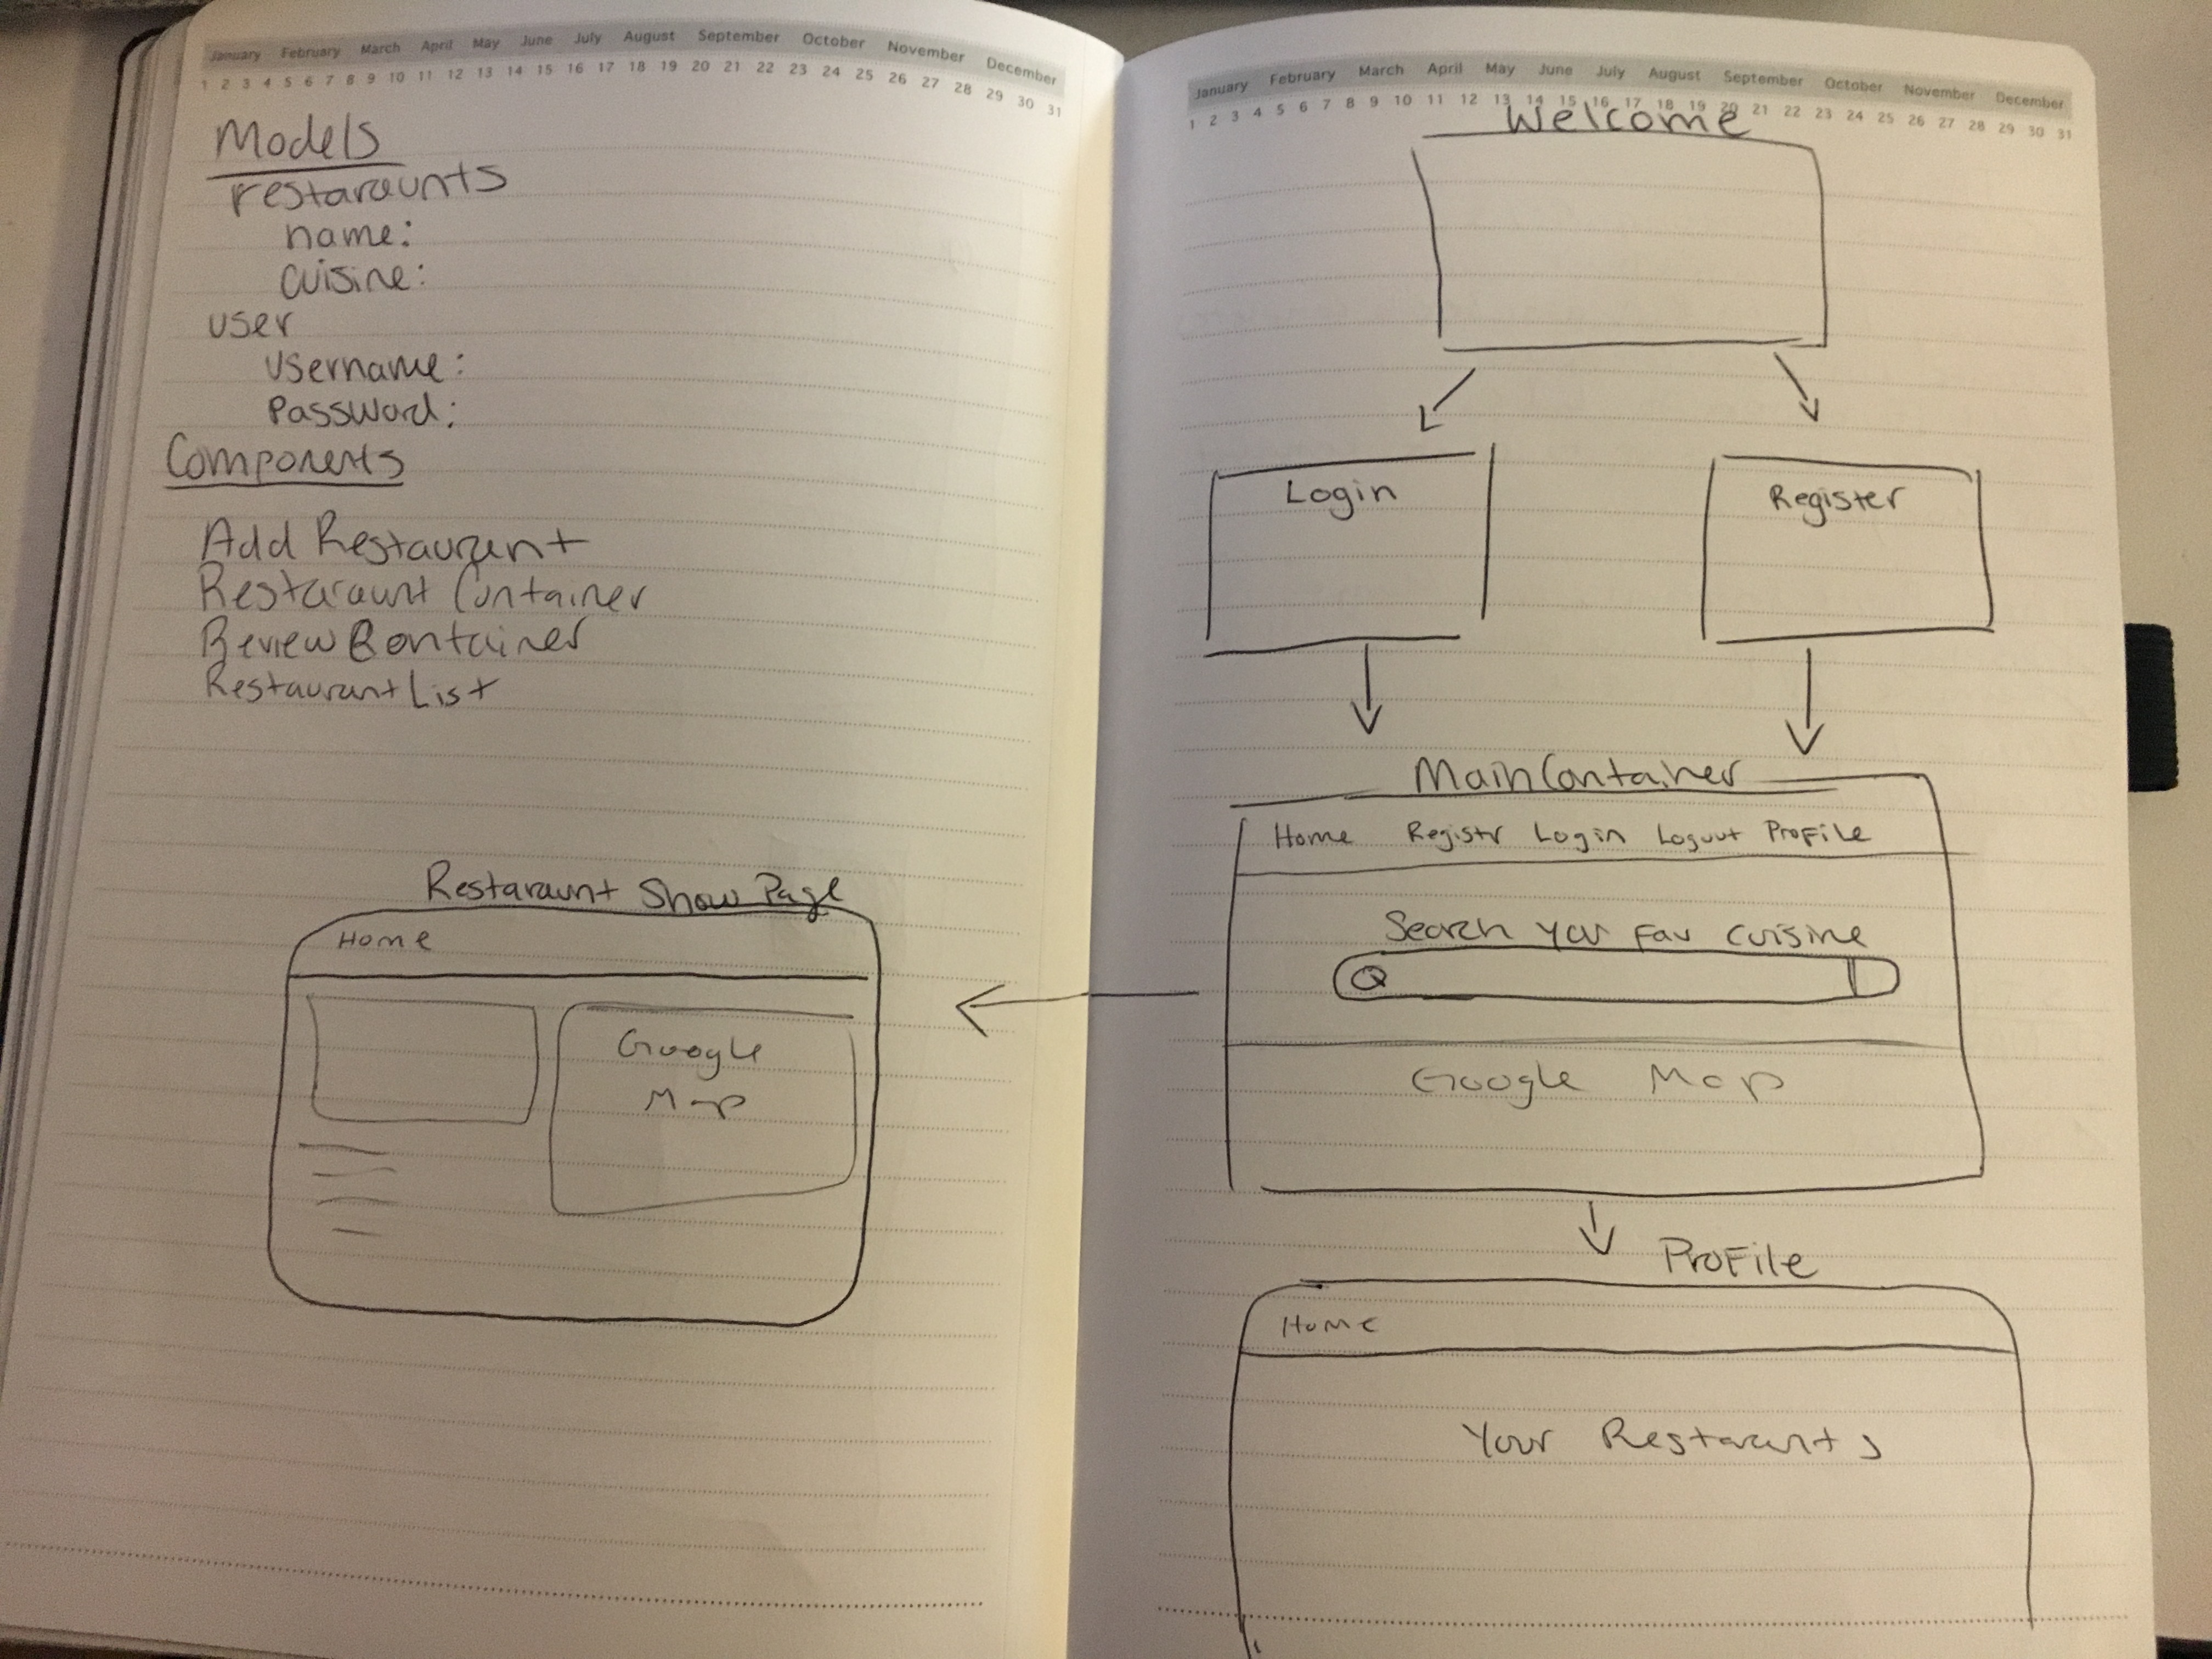 January February March April May June July August September October November December
1 2 3 4 5 6 7 8 9 10 11 12 13 14 15 16 17 18 19 20 21 22 23 24 25 26 27 28 29 30 31
Models
restaraunts
name:
cuisine:
user
username:
Password:
Components
Add Restaurant
Restaraunt Container
Review Container
Restaurant List
Restaraunt Show Page
Home
Google
Map
January February March April May June July August September October November December
1 2 3 4 5 6 7 8 9 10 11 12 13 14 15 16 17 18 19 20 21 22 23 24 25 26 27 28 29 30 31
Welcome
Login Register
MainContainer
Home Registr Login Logout Profile
Search your Fav cuisine
Google Map
Profile
Home
Your Restaraunts